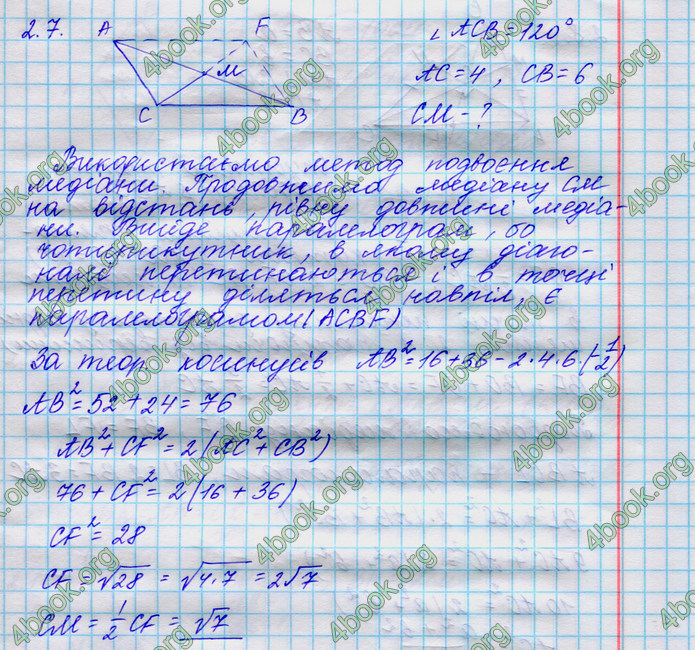 2.7. A F ∠ACB=120°
M AC=4, CB=6
C B CM-?
Використаємо метод подвоєння
медіани. Продовжимо медіану CM
на відстань рівну довжині медіа-
ни. Вийде паралелограм, бо
чотирикутник, в якому діаго-
налі перетинаються і в точці
перетину діляться навпіл, є
паралелограмом (ACBF)
За теор. косинусів AB²=16+36-2·4·6·(-1/2)
AB²=52+24=76
AB²+CF²=2(AC²+CB²)
76+CF²=2(16+36)
CF²=28
CF=√28=√4·7=2√7
CM=1/2CF=√7
4book.org